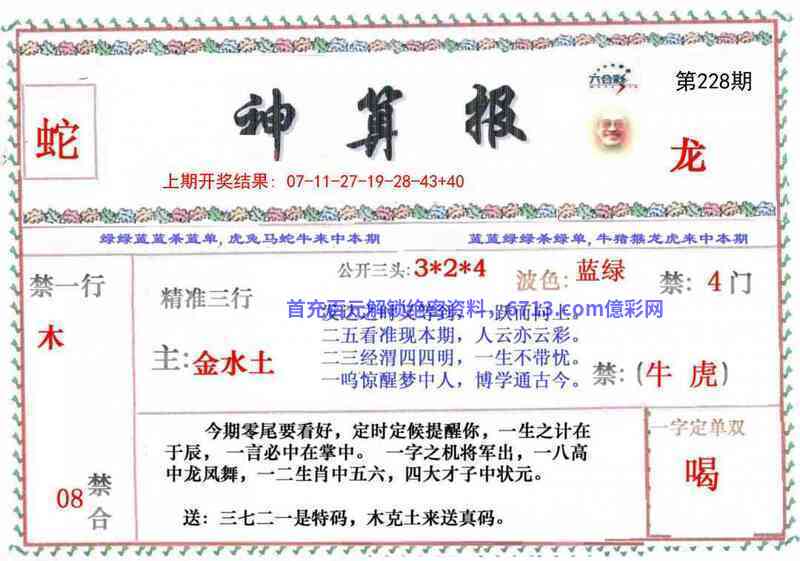 六合彩
第228期
蛇
神算报
龙
上期开奖结果: 07-11-27-19-28-43+40
绿绿蓝蓝杀蓝单,虎兔马蛇牛来中本期
蓝蓝绿绿杀绿单,牛猪猴龙虎来中本期
公开三头: 3*2*4
波色: 蓝绿
禁: 4门
禁一行
木
精准三行
主: 金水土
首充百元解锁绝密资料,6713.com億彩网
二五看准现本期，人云亦云彩。
二三经渭四四明，一生不带忧。
一呜惊醒梦中人，博学通古今。
禁: (牛 虎)
今期零尾要看好，定时定候提醒你，一生之计在
于辰， 一言必中在掌中。 一字之机将军出，一八高
中龙凤舞，一二生肖中五六，四大才子中状元。
送：三七二一是特码，木克土来送真码。
08 禁合
一字定单双
喝